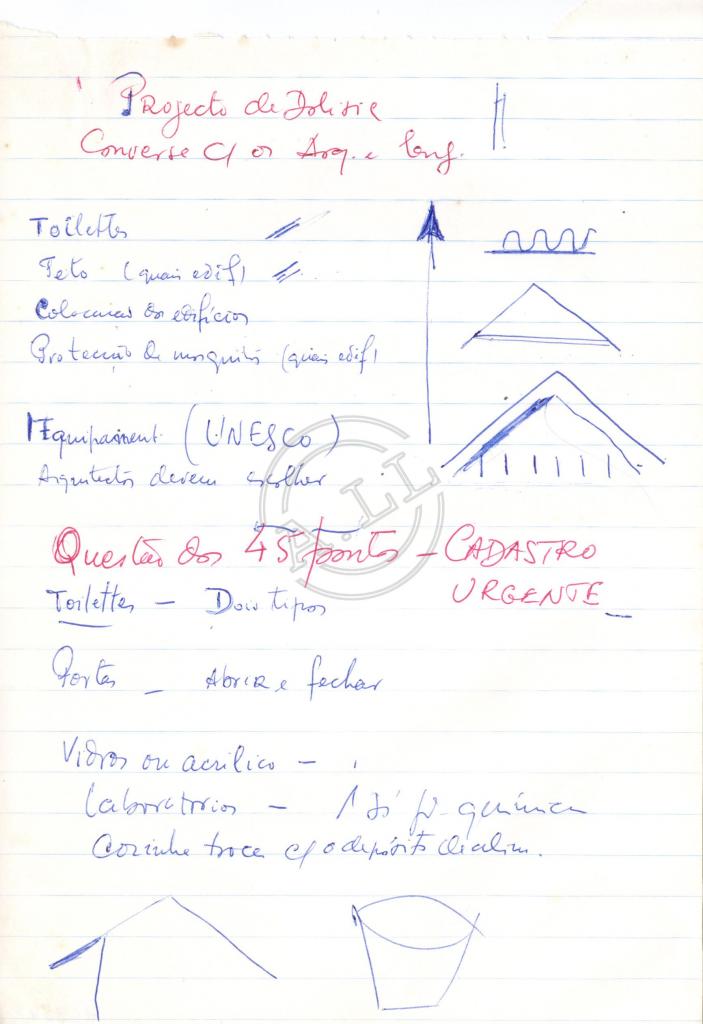 Projecto de Dolisie
Converse c/ os Arq. e Eng.
Toilettes
Teto (quais edif)
Colocacao dos edifícios
Protecção de mosquitos (quais edif)
Equipament (UNESCO)
Arquitectos devem escolher
Questão dos 45 pontos – CADASTRO
URGENTE
Toilettes – Dois tipos
Portas – Abrir e fechar
Vidros ou acrilico –
Laboratorios – 1 só química
Cozinha troca c/ o depósito de alim.
A.LL